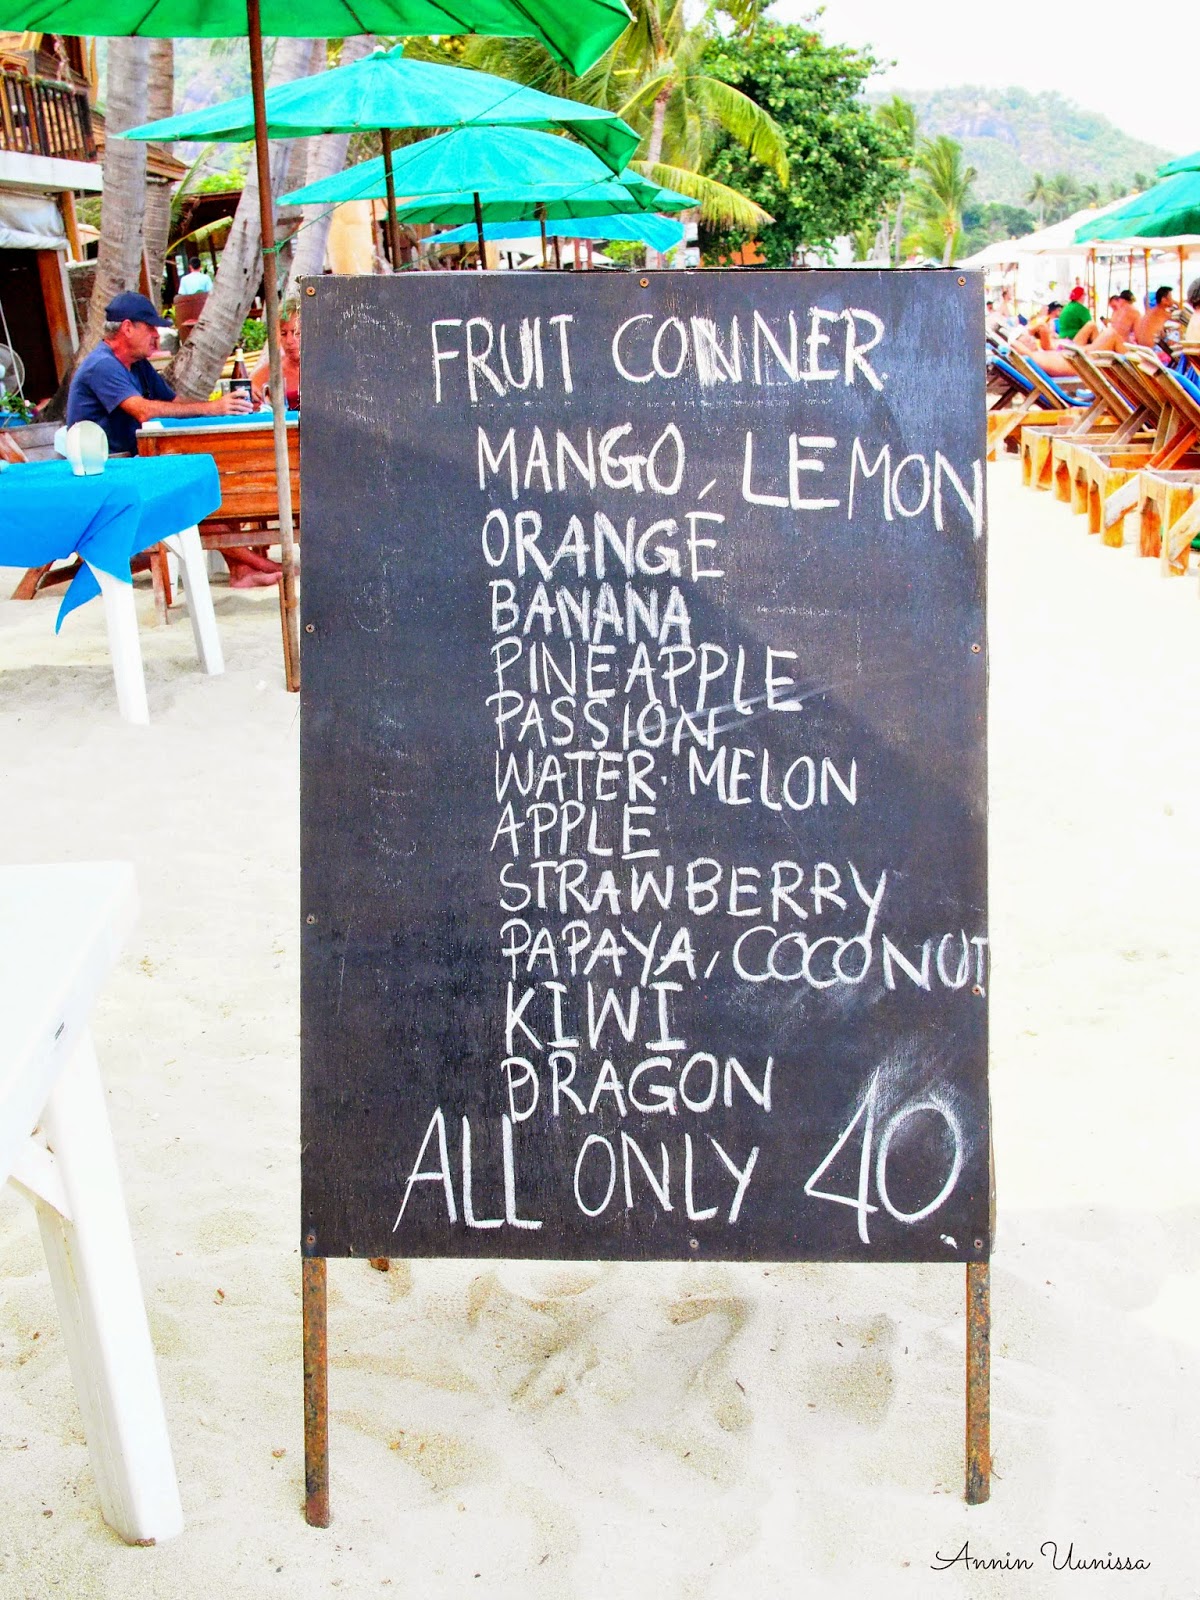 FRUIT CONNER.
MANGO, LEMON
ORANGE
BANANA
PINEAPPLE
PASSION
WATER. MELON
APPLE
STRAWBERRY
PAPAYA, COCONUT
KIWI
DRAGON
ALL ONLY 40.
Annin Uunissa